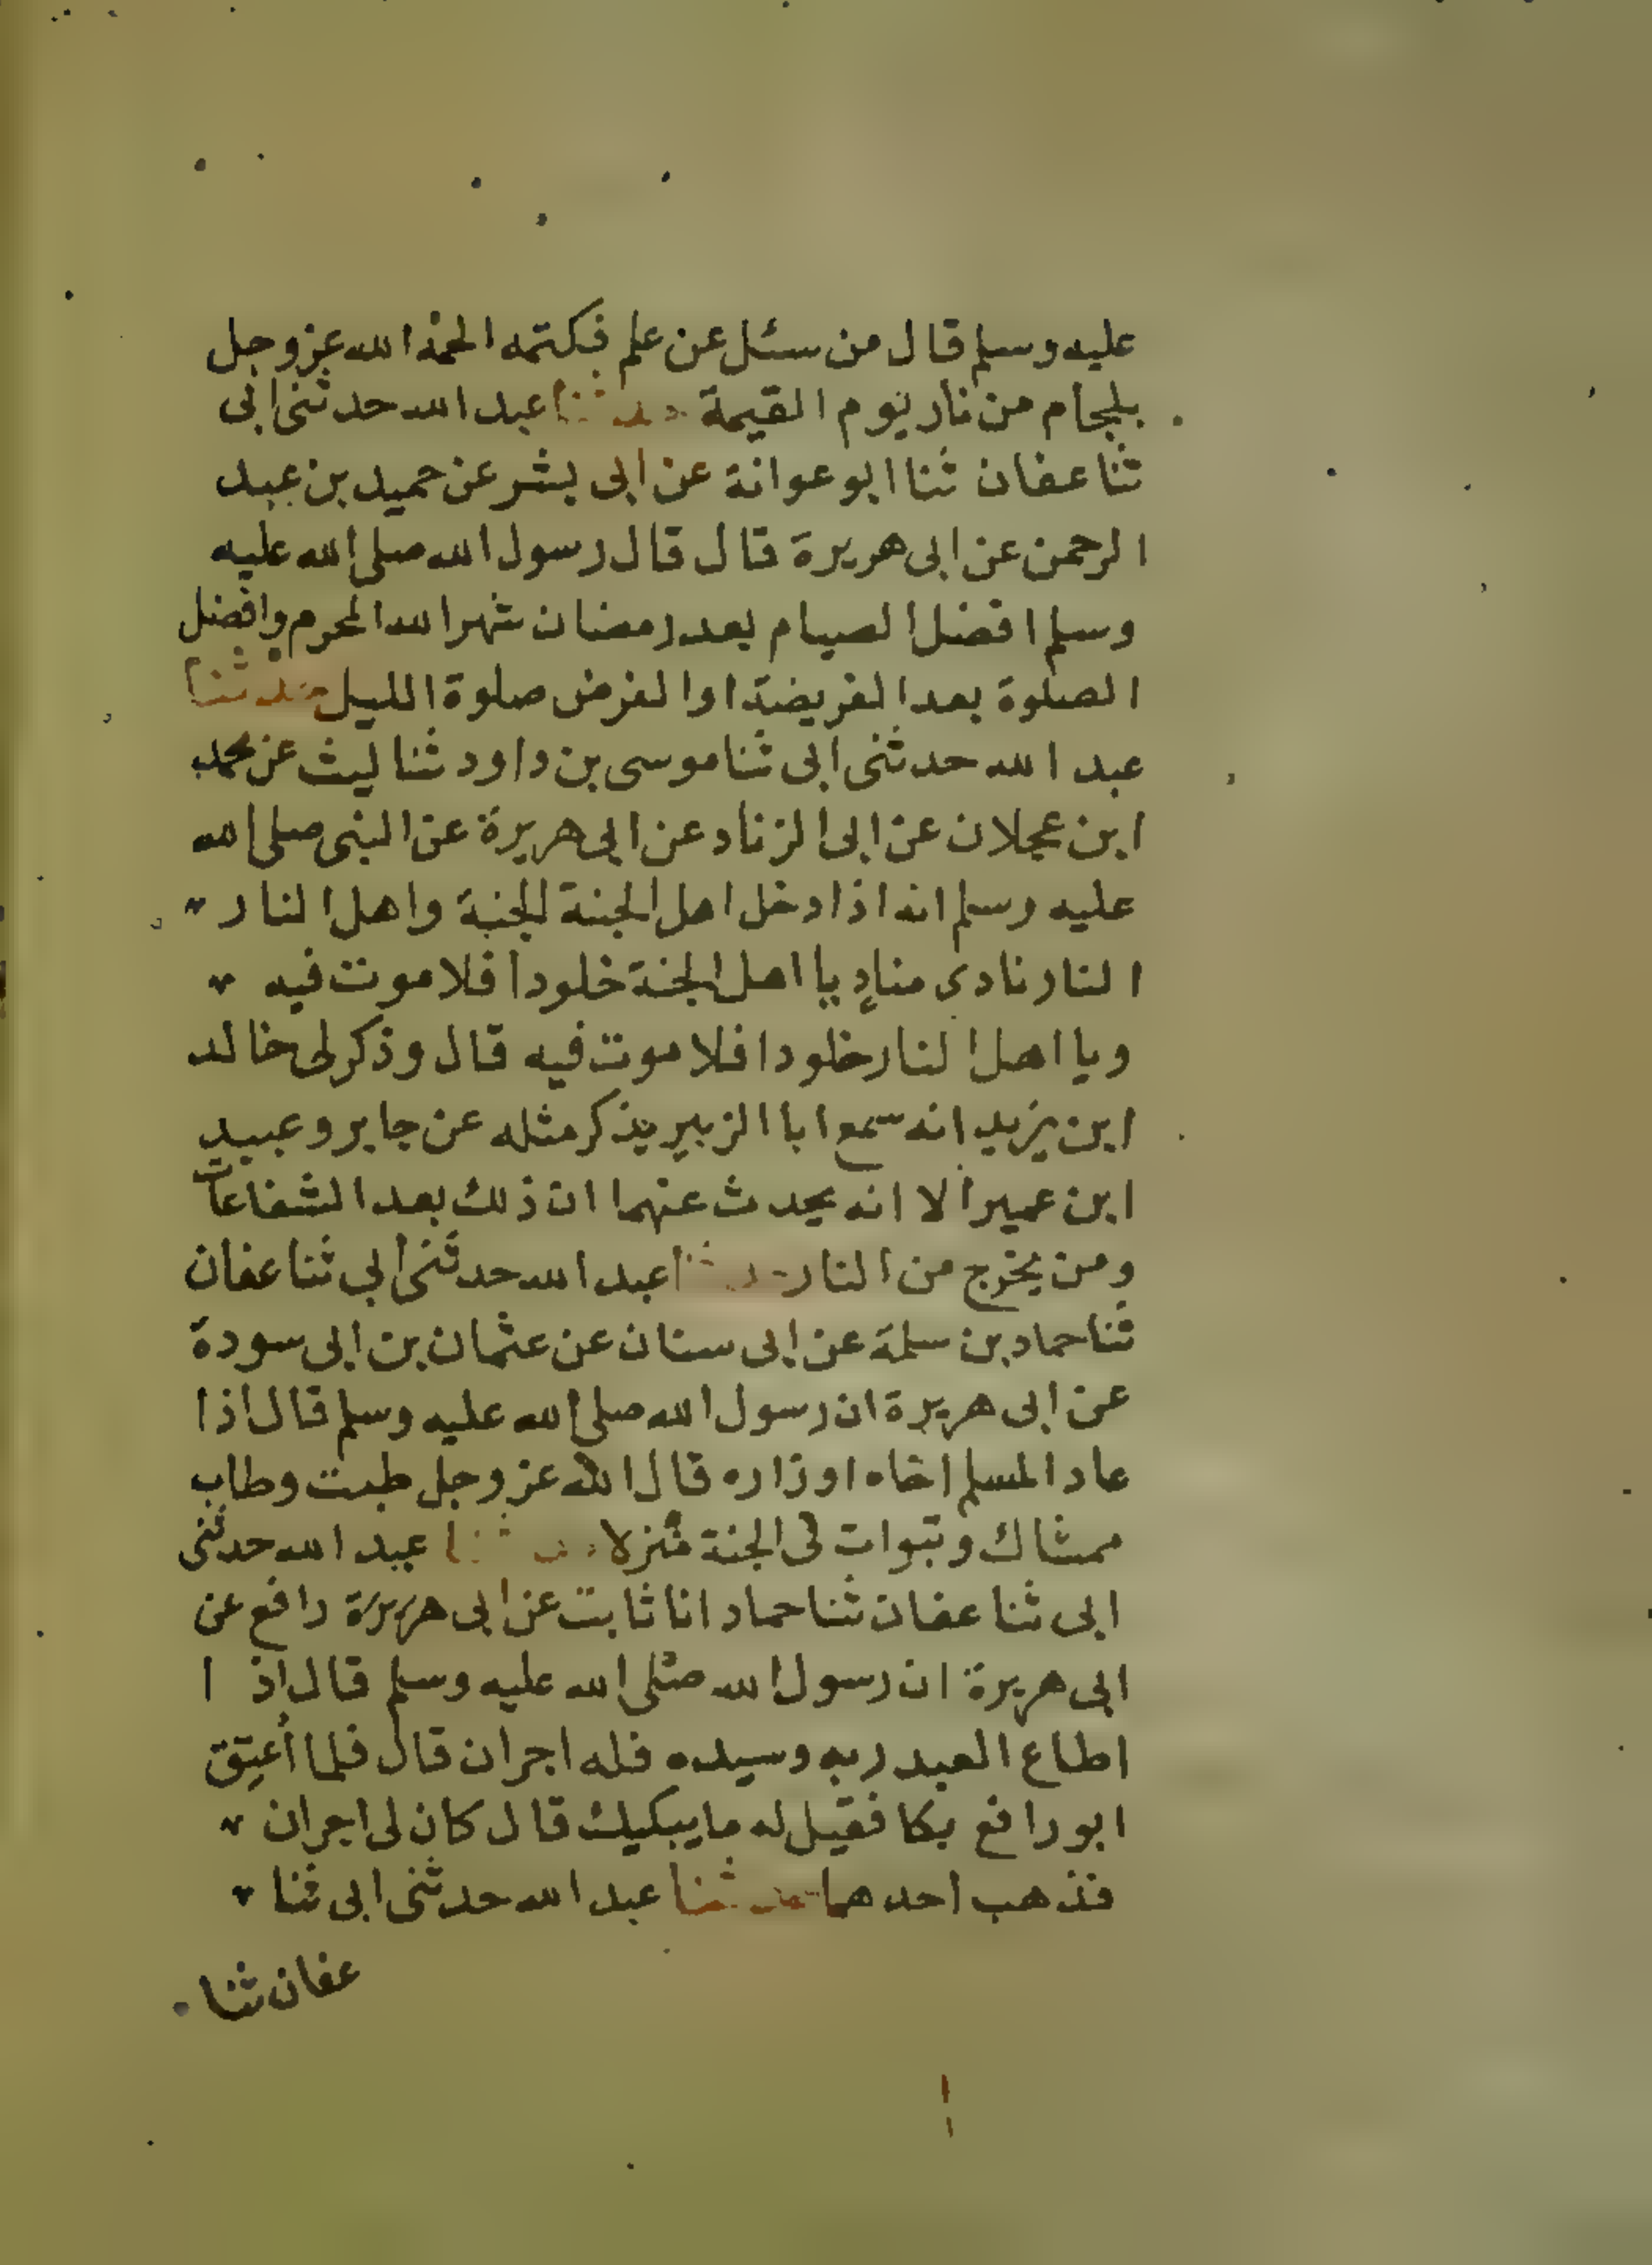 عليه وسلم قال من سئل عن علم فكتمه الجمه الله عز وجل
بلجام من نار يوم القيمة حدثنا عبد الله حدثنى ابى
ثنا عفان ثنا ابو عوانة عن ابى بشر عن حميد بن عبد
الرحمن عن ابى هريرة قال قال رسول الله صلى الله عليه
وسلم افضل الصيام بعد رمضان شهر الله المحرم وافضل
الصلوة بعد الفريضة او الفرض صلوة الليل حدثنا
عبد الله حدثنى ابى ثنا موسى بن داود ثنا ليث عن محمد
ابن عجلان عن ابى الزناد عن ابى هريرة عن النبى صلى الله
عليه وسلم انه اذا دخل اهل الجنة الجنة واهل النار
النار نادى منادٍ يا اهل الجنة خلودا فلا موت فيه
ويا اهل النار خلودا فلا موت فيه قال وذكر لى خالد
ابن يزيد انه سمع ابا الزبير يذكر مثله عن جابر وعبيد
ابن عمير الا انه يحدث عنهما ان ذلك بعد الشفاعات
ومن يخرج من النار حدثنا عبد الله حدثنى ابي ثنا عفان
ثنا حماد بن سلمة عن ابى سنان عن عثمان بن ابى سودة
عن ابى هريرة ان رسول الله صلى الله عليه وسلم قال اذا
عاد المسلم اخاه او زاره قال الله عز وجل طبت وطاب
ممشاك وتبوات فى الجنة منزلا حدثنا عبد الله حدثنى
ابى ثنا عفان ثنا حماد انا ثابت عن ابى هريرة رافع عن
ابى هريرة ان رسول الله صلى الله عليه وسلم قال اذ ا
اطاع العبد ربه وسيده فله اجران قال فلما أعتِق
ابو رافع بكا فقيل له ما يبكيك قال كان لى اجران
فذهب احدهما حدثنا عبد الله حدثنى ابى ثنا
عفان ثنا